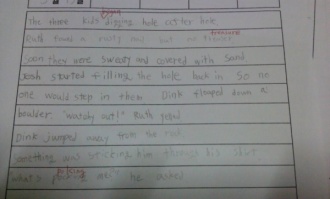 began
The three kids digging hole after hole
Ruth found a rusty nail but no treasure
Soon they were sweaty and covered with sand
Josh started filling the hole back in so no
one would step in them. Dink flopped down
boulder. "watch out!" Ruth yelled
Dink jumped away from the rock
Something was sticking him through his shirt
"what's poking me?" he asked